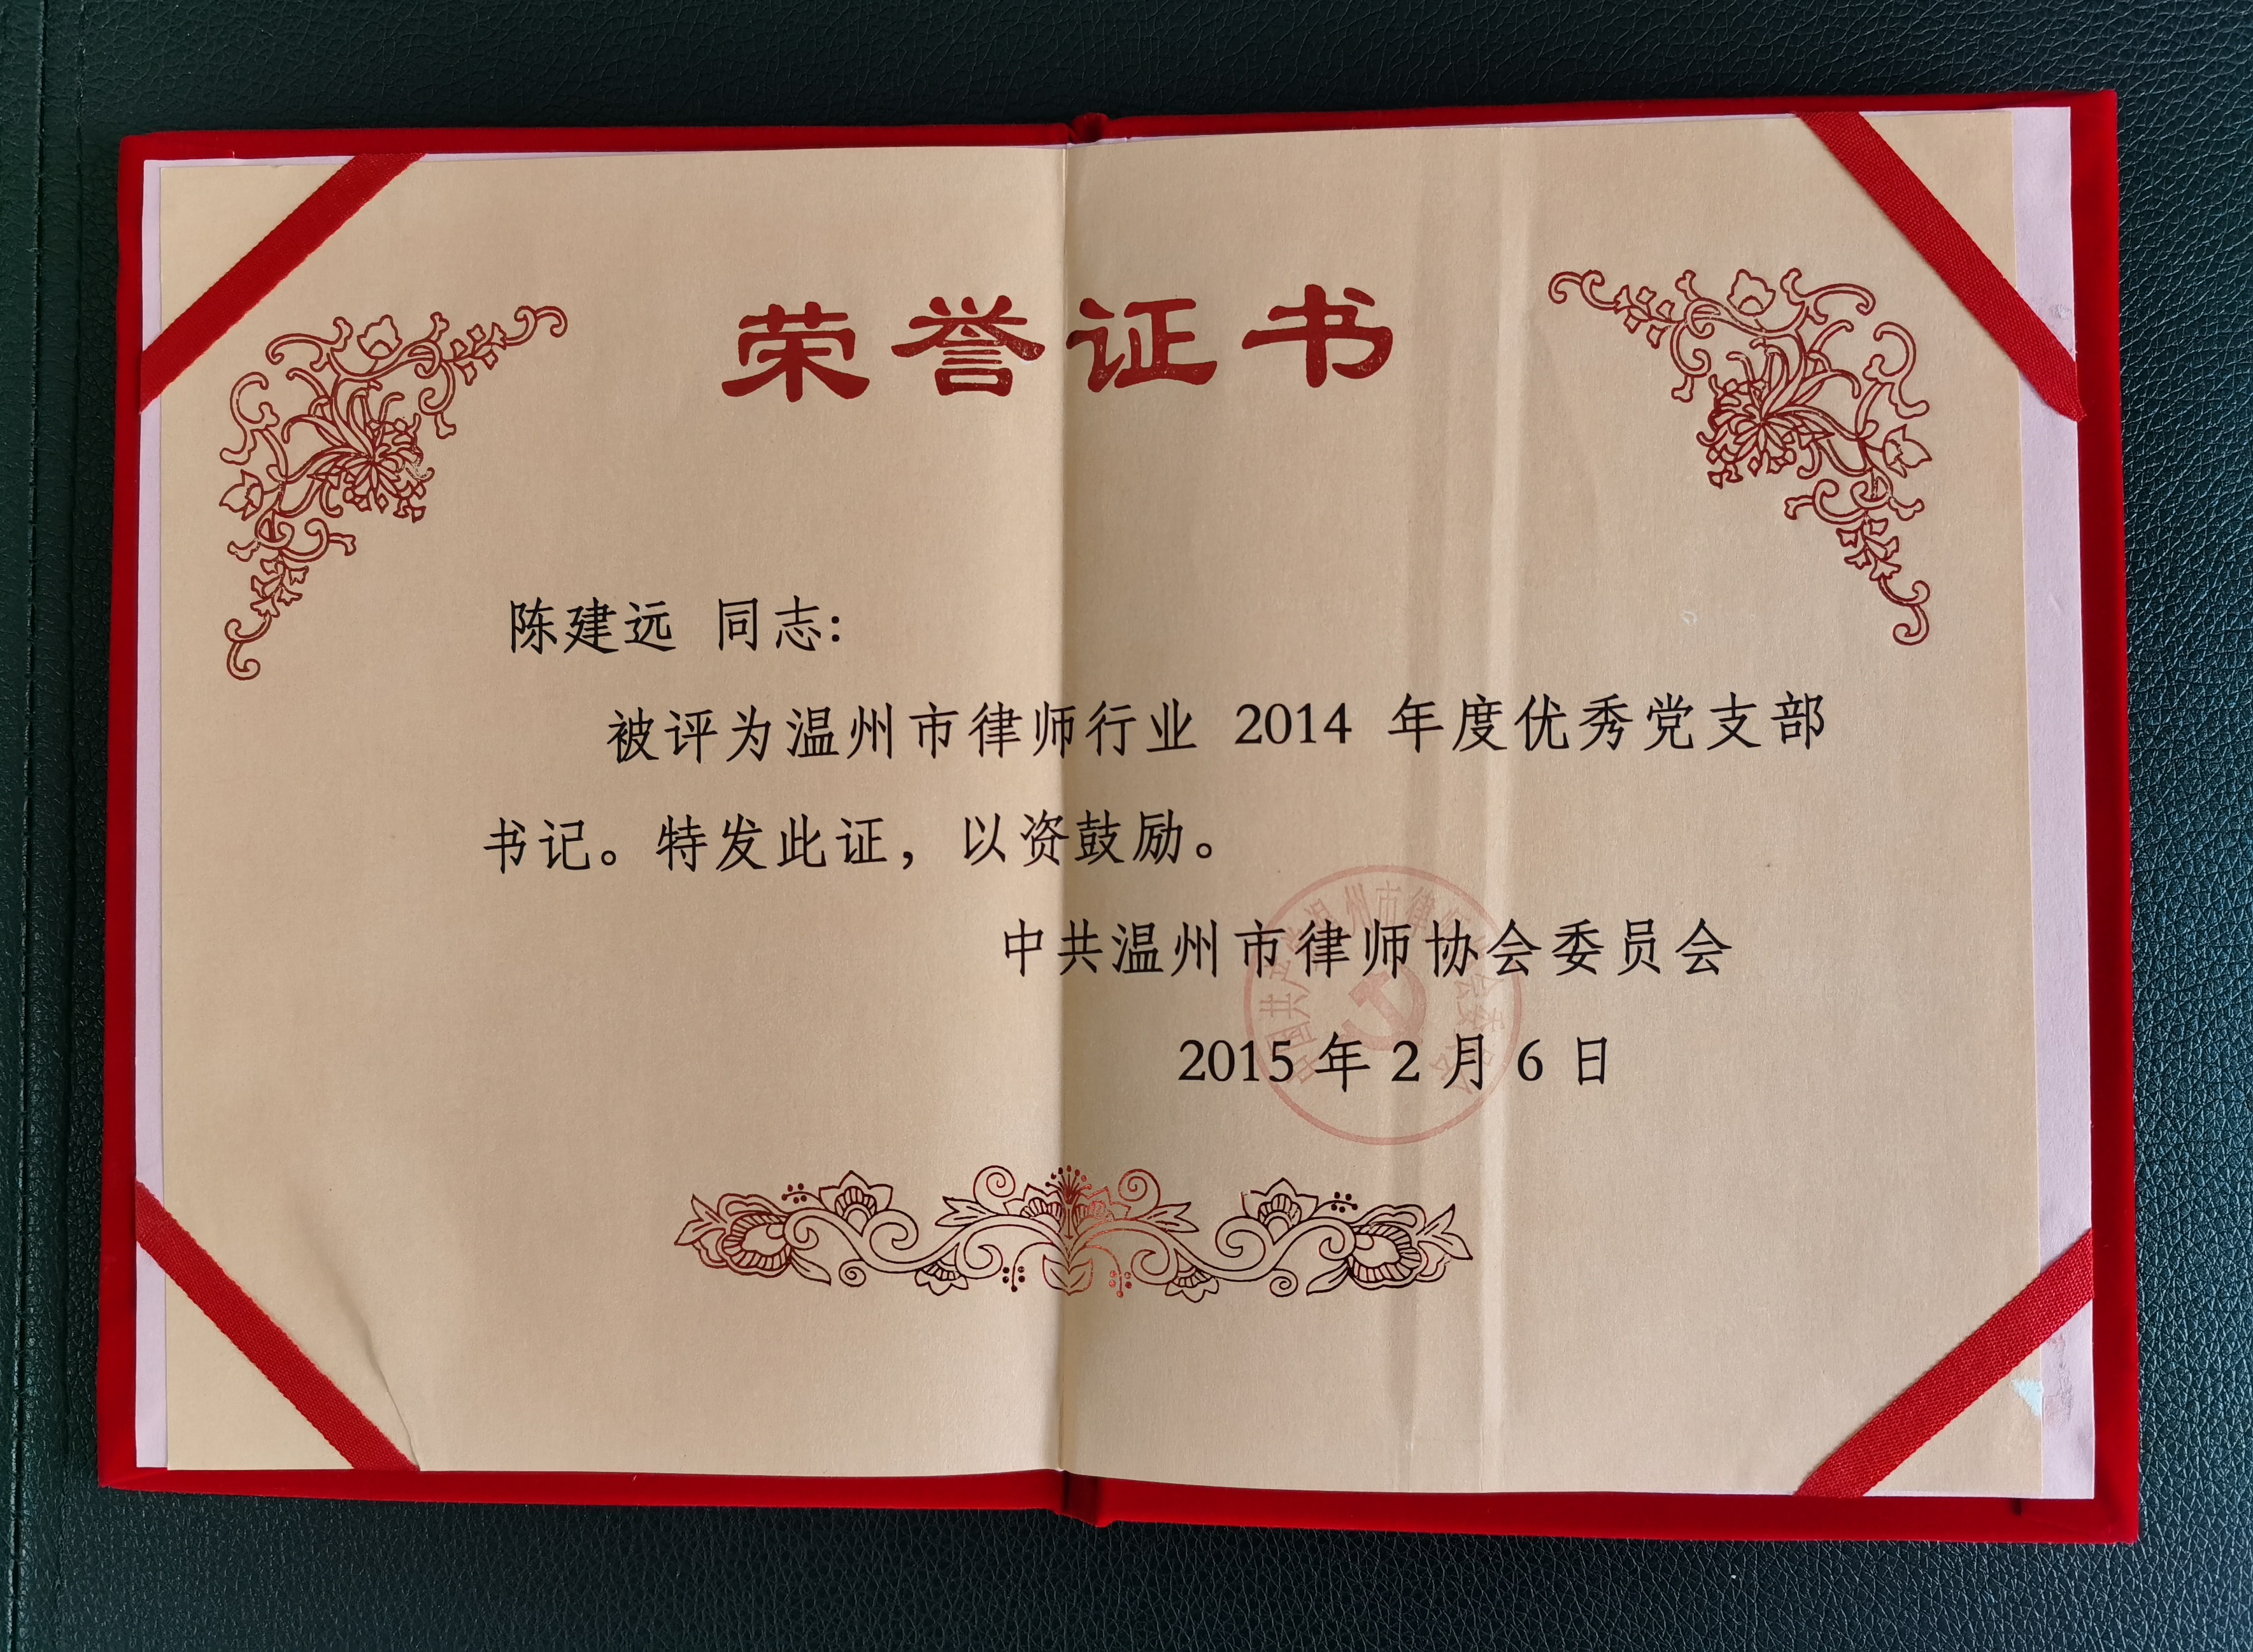 荣誉证书
陈建远 同志:
被评为温州市律师行业 2014 年度优秀党支部
书记。特发此证，以资鼓励。
中共温州市律师协会委员会
2015 年 2 月 6 日